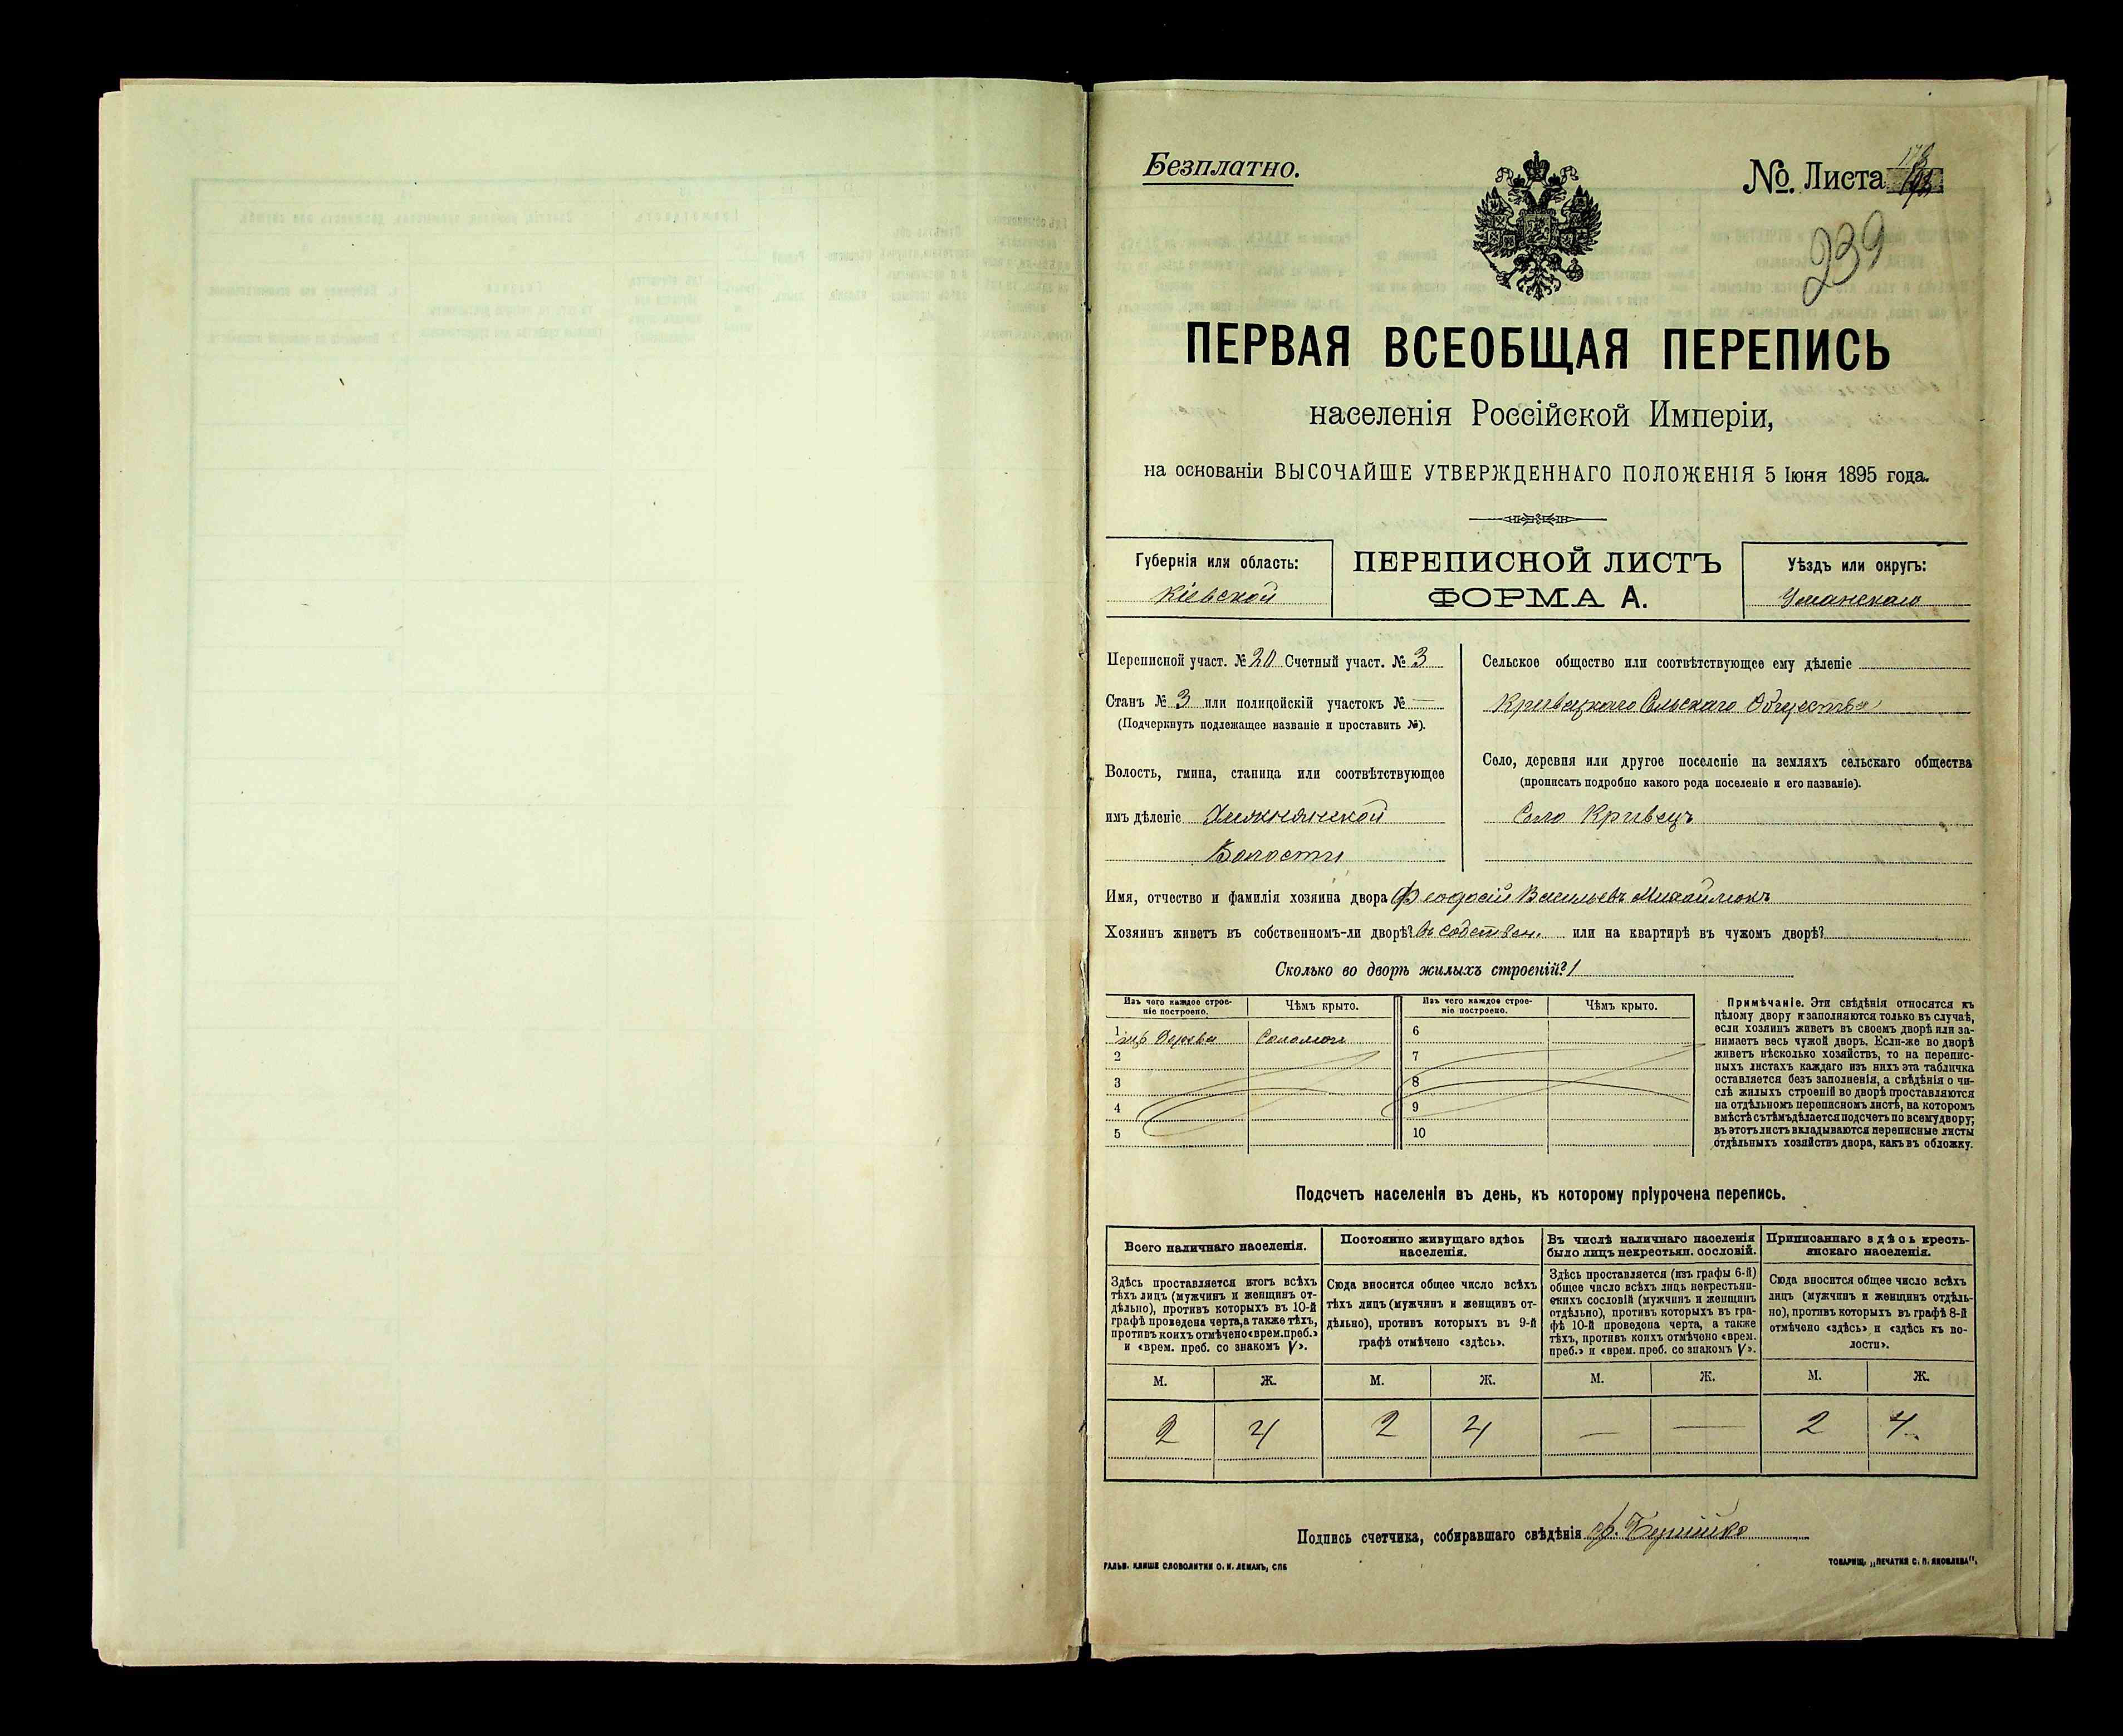 Безплатно.
№. Листа
239
ПЕРВАЯ ВСЕОБЩАЯ ПЕРЕПИСЬ
населенія Россійской Имперіи,
на основаніи ВЫСОЧАЙШЕ УТВЕРЖДЕННАГО ПОЛОЖЕНІЯ 5 Іюня 1895 года.
Губернія или область:
Кіевской
ПЕРЕПИСНОЙ ЛИСТЪ
ФОРМА А.
Уѣздъ или округъ:
Уманскаго
Переписной участ. № 20 Счетный участ. № 3
Станъ № 3 или полицейскій участокъ № —
(Подчеркнуть подлежащее названіе и проставить №).
Волость, гмина, станица или соотвѣтствующее
имъ дѣленіе
Волости
Сельское общество или соотвѣтствующее ему дѣленіе
Кривецкаго Сельскаго Общества
Село, деревня или другое поселеніе на земляхъ сельскаго общества
(прописать подробно какого рода поселеніе и его названіе).
Село Кривецъ
Имя, отчество и фамилія хозяина двора Феодосій Васильевъ Михайлюкъ
Хозяинъ живетъ въ собственномъ-ли дворѣ? въ собствен. или на квартирѣ въ чужомъ дворѣ?
Сколько во дворѣ жилыхъ строеній? 1
Изъ чего каждое строе-
ніе построено.
Чѣмъ крыто.
Изъ чего каждое строе-
ніе построено.
Чѣмъ крыто.
1 изъ Дерева Соломою 6
2 7
3 8
4 9
5 10
Примѣчаніе. Эти свѣдѣнія относятся къ
цѣлому двору и заполняются только въ случаѣ,
если хозяинъ живетъ въ своемъ дворѣ или за-
нимаетъ весь чужой дворъ. Если-же во дворѣ
живетъ нѣсколько хозяйствъ, то на перепис-
ныхъ листахъ каждаго изъ нихъ эта табличка
оставляется безъ заполненія, а свѣдѣнія о чи-
слѣ жилыхъ строеній во дворѣ проставляются
на отдѣльномъ переписномъ листѣ, на которомъ
вмѣстѣ съ тѣмъ дѣлается подсчетъ по всему двору;
въ этотъ листъ вкладываются переписные листы
отдѣльныхъ хозяйствъ двора, какъ въ обложку.
Подсчетъ населенія въ день, къ которому пріурочена перепись.
Всего наличнаго населенія.
Здѣсь проставляется итогъ всѣхъ
тѣхъ лицъ (мужчинъ и женщинъ от-
дѣльно), противъ которыхъ въ 10-й
графѣ проведена черта, а также тѣхъ,
противъ коихъ отмѣчено «врем. преб.»
и «врем. преб. со знакомъ V».
Постоянно живущаго здѣсь
населенія.
Сюда вносится общее число всѣхъ
тѣхъ лицъ (мужчинъ и женщинъ от-
дѣльно), противъ которыхъ въ 9-й
графѣ отмѣчено «здѣсь».
Въ числѣ наличнаго населенія
было лицъ некрестьян. сословій.
Здѣсь проставляется (изъ графы 6-й)
общее число всѣхъ лицъ некрестьян-
скихъ сословій (мужчинъ и женщинъ
отдѣльно), противъ которыхъ въ гра-
фѣ 10-й проведена черта, а также
тѣхъ, противъ коихъ отмѣчено «врем.
преб.» и «врем. преб. со знакомъ V».
Приписаннаго здѣсь кресть-
янскаго населенія.
Сюда вносится общее число всѣхъ
лицъ (мужчинъ и женщинъ отдѣль-
но), противъ которыхъ въ графѣ 8-й
отмѣчено «здѣсь» и «здѣсь къ во-
лости».
М. Ж. М. Ж. М. Ж. М. Ж.
2 4 2 4 — — 2 4
Подпись счетчика, собиравшаго свѣдѣнія
ГАЛЬВ. КЛИШЕ СЛОВОЛИТНИ О. И. ЛЕМАНЪ, СПБ
ТОВАРИЩ. „ПЕЧАТНЯ С. П. ЯКОВЛЕВА".